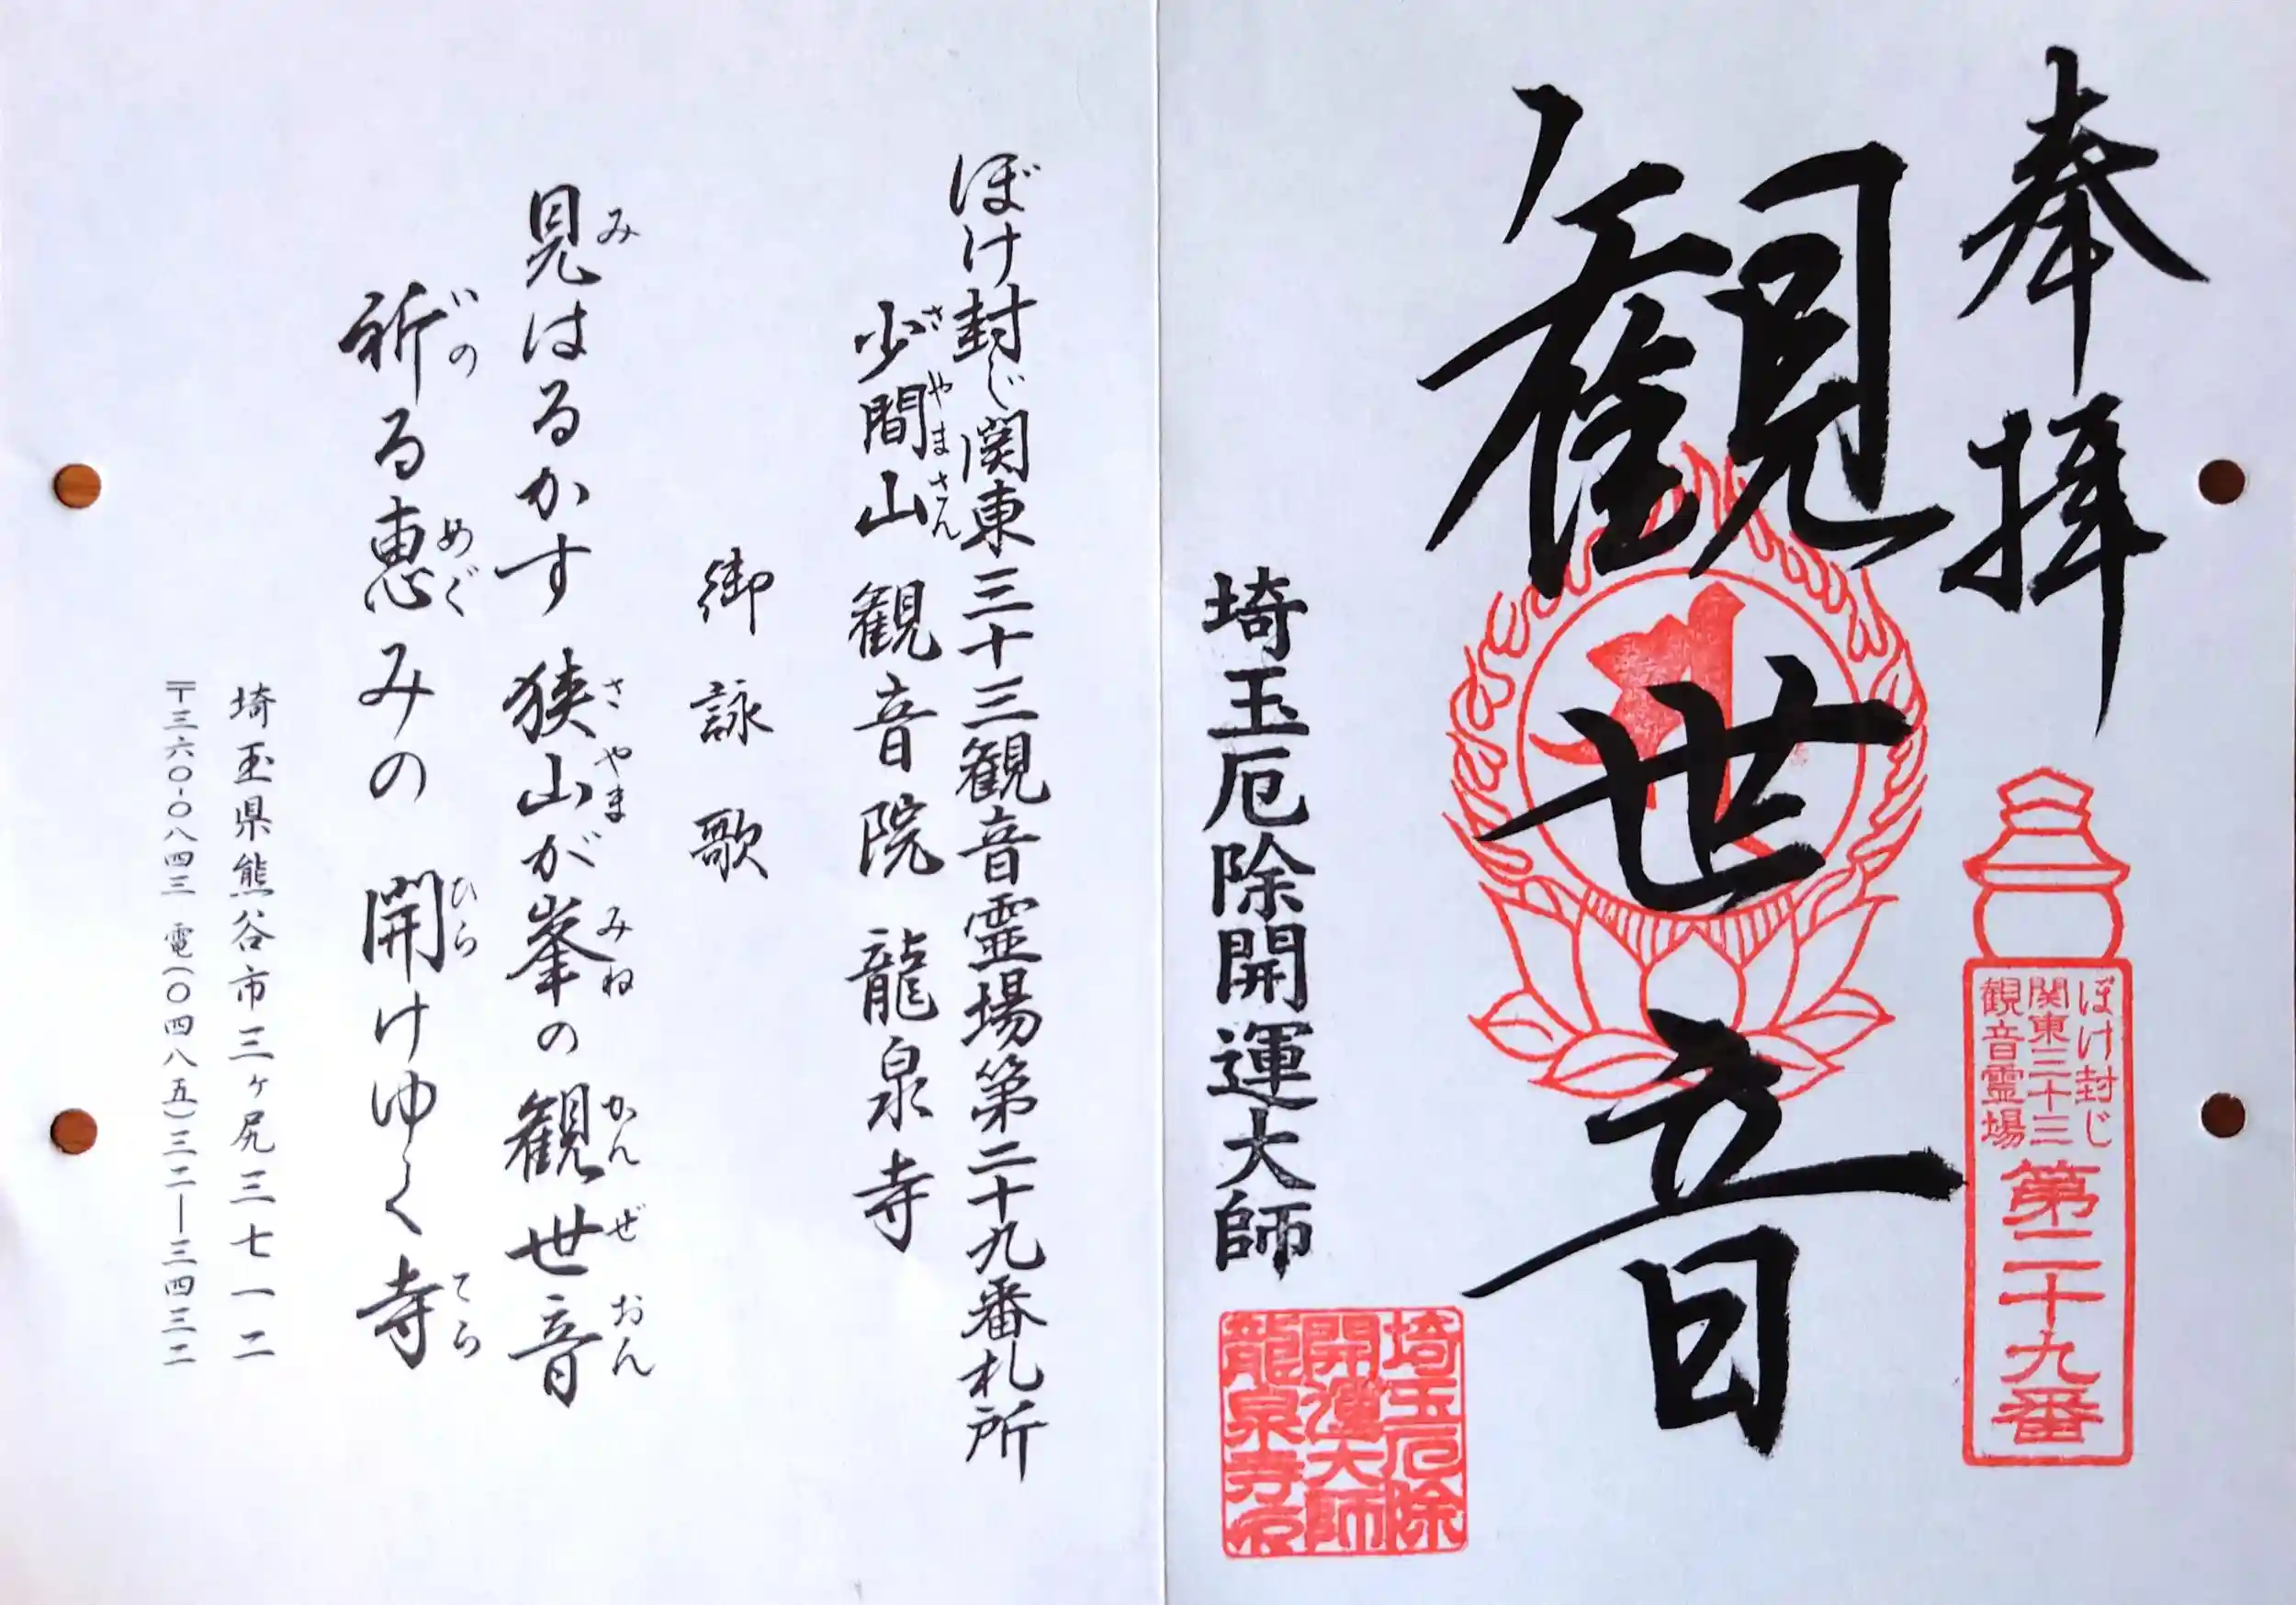 奉拝
ぼけ封じ
関東三十三
観音霊場
第二十九番
観世音
埼玉厄除開運大師
埼玉厄除
開運大師
龍泉寺印
ぼけ封じ関東三十三観音霊場第二十九番札所
少間山 観音院 龍泉寺
さやまさん
御詠歌
見はるかす 狭山が峯の 観世音
み さやま みね かんぜおん
祈る恵みの 開けゆく寺
いの めぐ ひら てら
埼玉県熊谷市三ヶ尻三七一二
〒三六〇-〇八四三 電(〇四八五)三二―三四三二